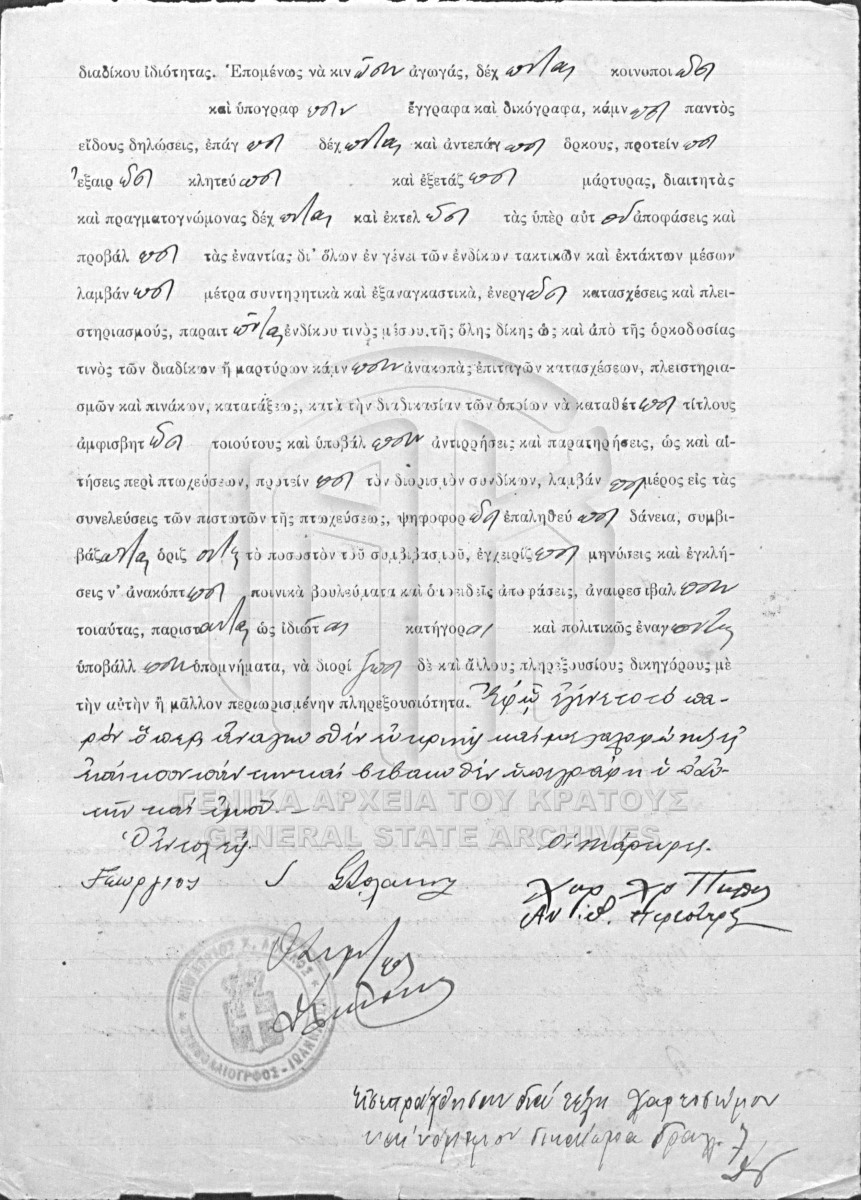 διαδίκου ἰδιότητας. Ἑπομένως νὰ κιν ῶσιν ἀγωγάς, δέχ ωνται κοινοποι ῶσι
καὶ ὑπογραφ ωσιν ἔγγραφα καὶ δικόγραφα, κάμν ωσι παντὸς
εἴδους δηλώσεις, ἐπάγ ωσι δέχ ωνται καὶ ἀντεπάγ ωσι ὅρκους, προτείν ωσι
ἐξαιρ ῶσι κλητεύ ωσι καὶ ἐξετάζ ωσι μάρτυρας, διαιτητὰς
καὶ πραγματογνώμονας δέχ ωνται καὶ ἐκτελ ῶσι τὰς ὑπὲρ αὐτ οῦ ἀποφάσεις καὶ
προβάλ ωσι τὰς ἐναντίας δι' ὅλων ἐν γένει τῶν ἐνδίκων τακτικῶν καὶ ἐκτάκτων μέσων
λαμβάν ωσι μέτρα συντηρητικὰ καὶ ἐξαναγκαστικὰ, ἐνεργ ῶσι κατασχέσεις καὶ πλει-
στηριασμούς, παραιτ ῶνται ἐνδίκου τινὸς μέσου, τῆς ὅλης δίκης ὡς καὶ ἀπὸ τῆς ὁρκοδοσίας
τινὸς τῶν διαδίκων ἢ μαρτύρων κάμν ωσιν ἀνακοπὰς ἐπιταγῶν κατασχέσεων, πλειστηρια-
σμῶν καὶ πινάκων, κατατάξεως, κατὰ τὴν διαδικασίαν τῶν ὁποίων νὰ καταθέτ ωσι τίτλους
ἀμφισβητ ῶσι τοιούτους καὶ ὑποβάλ ωσιν ἀντιρρήσεις καὶ παρατηρήσεις, ὡς καὶ αἰ-
τήσεις περὶ πτωχεύσεων, προτείν ωσι τὸν διορισμὸν συνδίκων, λαμβάν ωσι μέρος εἰς τὰς
συνελεύσεις τῶν πιστωτῶν τῆς πτωχεύσεως, ψηφοφορ ῶσι ἐπαληθεύ ωσι δάνεια, συμβι-
βάζ ωνται ὁρίζ οντες τὸ ποσοστὸν τοῦ συμβιβασμοῦ, ἐγχειρίζ ωσι μηνύσεις καὶ ἐγκλή-
σεις ν' ἀνακόπτ ωσι ποινικὰ βουλεύματα καὶ ὁμοειδεῖς ἀποφάσεις, ἀναιρεσιβαλ ωσιν
τοιαύτας, παριστ ανται ὡς ἰδιῶτ αι κατήγορ οι καὶ πολιτικῶς ἐναγ οντες
ὑποβάλλ ωσιν ὑπομνήματα, νὰ διορί ζωσι δὲ καὶ ἄλλους πληρεξουσίους δικηγόρους μὲ
τὴν αὐτὴν ἢ μᾶλλον περιωρισμένην πληρεξουσιότητα. Ἐφ' ᾧ ἐγένετο τὸ πα-
ρὸν ὅπερ ἀναγνωσθὲν εὐκρινῶς καὶ μεγαλοφώνως εἰς
ἐπήκοον πάντων καὶ βεβαιωθὲν ὑπεγράφη
καὶ ἐμοῦ.-
Ὁ ἐντολεύς Οἱ Μάρτυρες.
Γεώργιος
ΓΕΝΙΚΑ ΑΡΧΕΙΑ ΤΟΥ ΚΡΑΤΟΥΣ
GENERAL STATE ARCHIVES
Εἰσεπράχθησαν διὰ τέλη χαρτοσήμου
καὶ νόμιμον δικαίωμα δραχ.